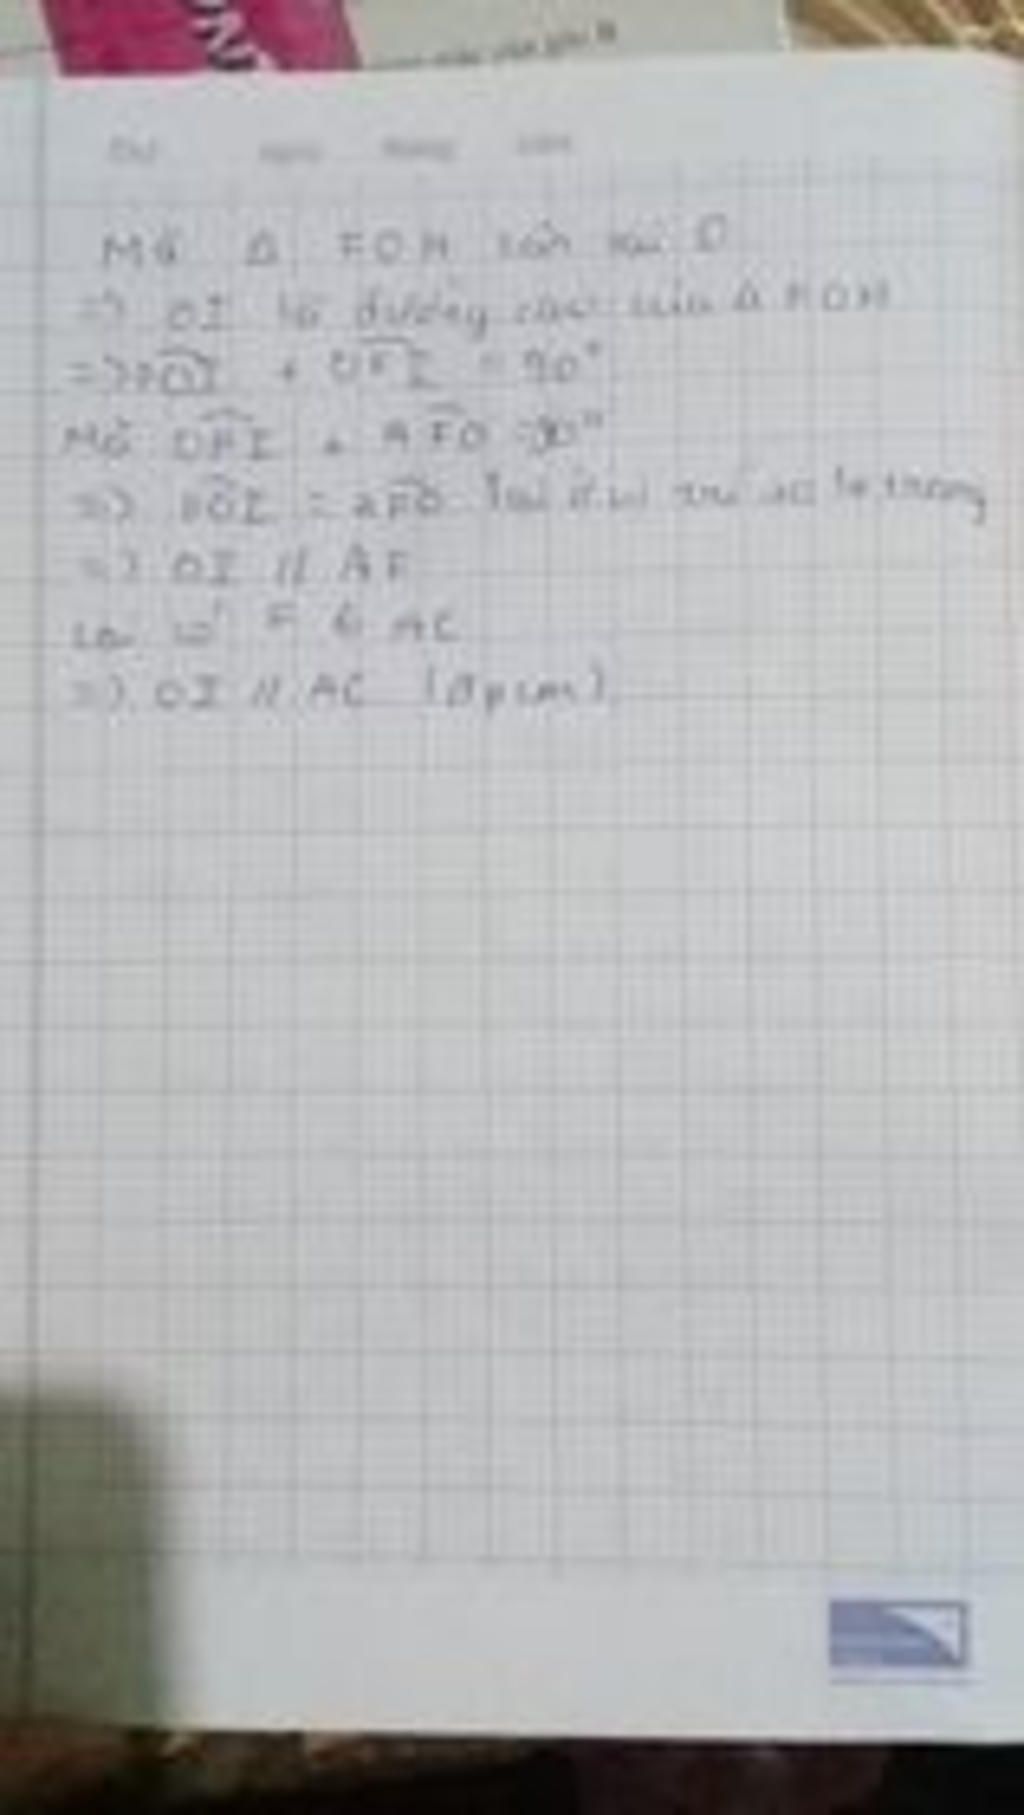 Mà Δ FOH cân tại O
=> OI là đường cao của Δ FOH
=> FOI + OFI = 90°
Mà OFI + AFO = 90°
=> FOI = AFO lại ở vị trí so le trong
=> OI // AF
Lại có F ∈ AC
=> OI // AC (đpcm)